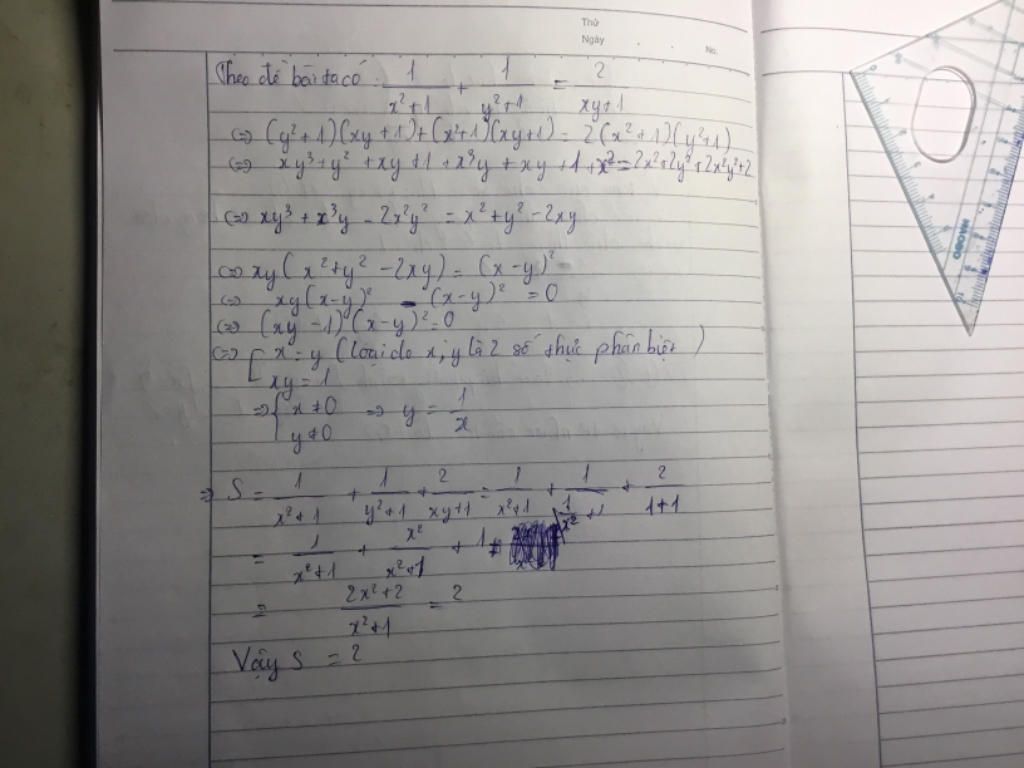 Thứ
Ngày No.
Theo đề bài ta có 1/(x²+1) + 1/(y²+1) = 2/(xy+1)
(=) (y²+1)(xy+1)+(x²+1)(xy+1) = 2(x²+1)(y²+1)
(=) xy³+y²+xy+1+x³y+xy+1+x²=2x²+2y²+2x²y²+2
(=) xy³+x³y-2x²y² = x²+y²-2xy
(=) xy(x²+y²-2xy) = (x-y)²
(=) xy(x-y)² - (x-y)² = 0
(=) (xy-1)(x-y)²=0
(=) [ x=y (loại do x,y là 2 số thực phân biệt)
xy=1
=> { x≠0 => y = 1/x
y≠0
=> S = 1/(x²+1) + 1/(y²+1) + 2/(xy+1) = 1/(x²+1) + 1/(1/x²+1) + 2/(1+1)
= 1/(x²+1) + x²/(x²+1) + 1
= (2x²+2)/(x²+1) = 2
Vậy S = 2